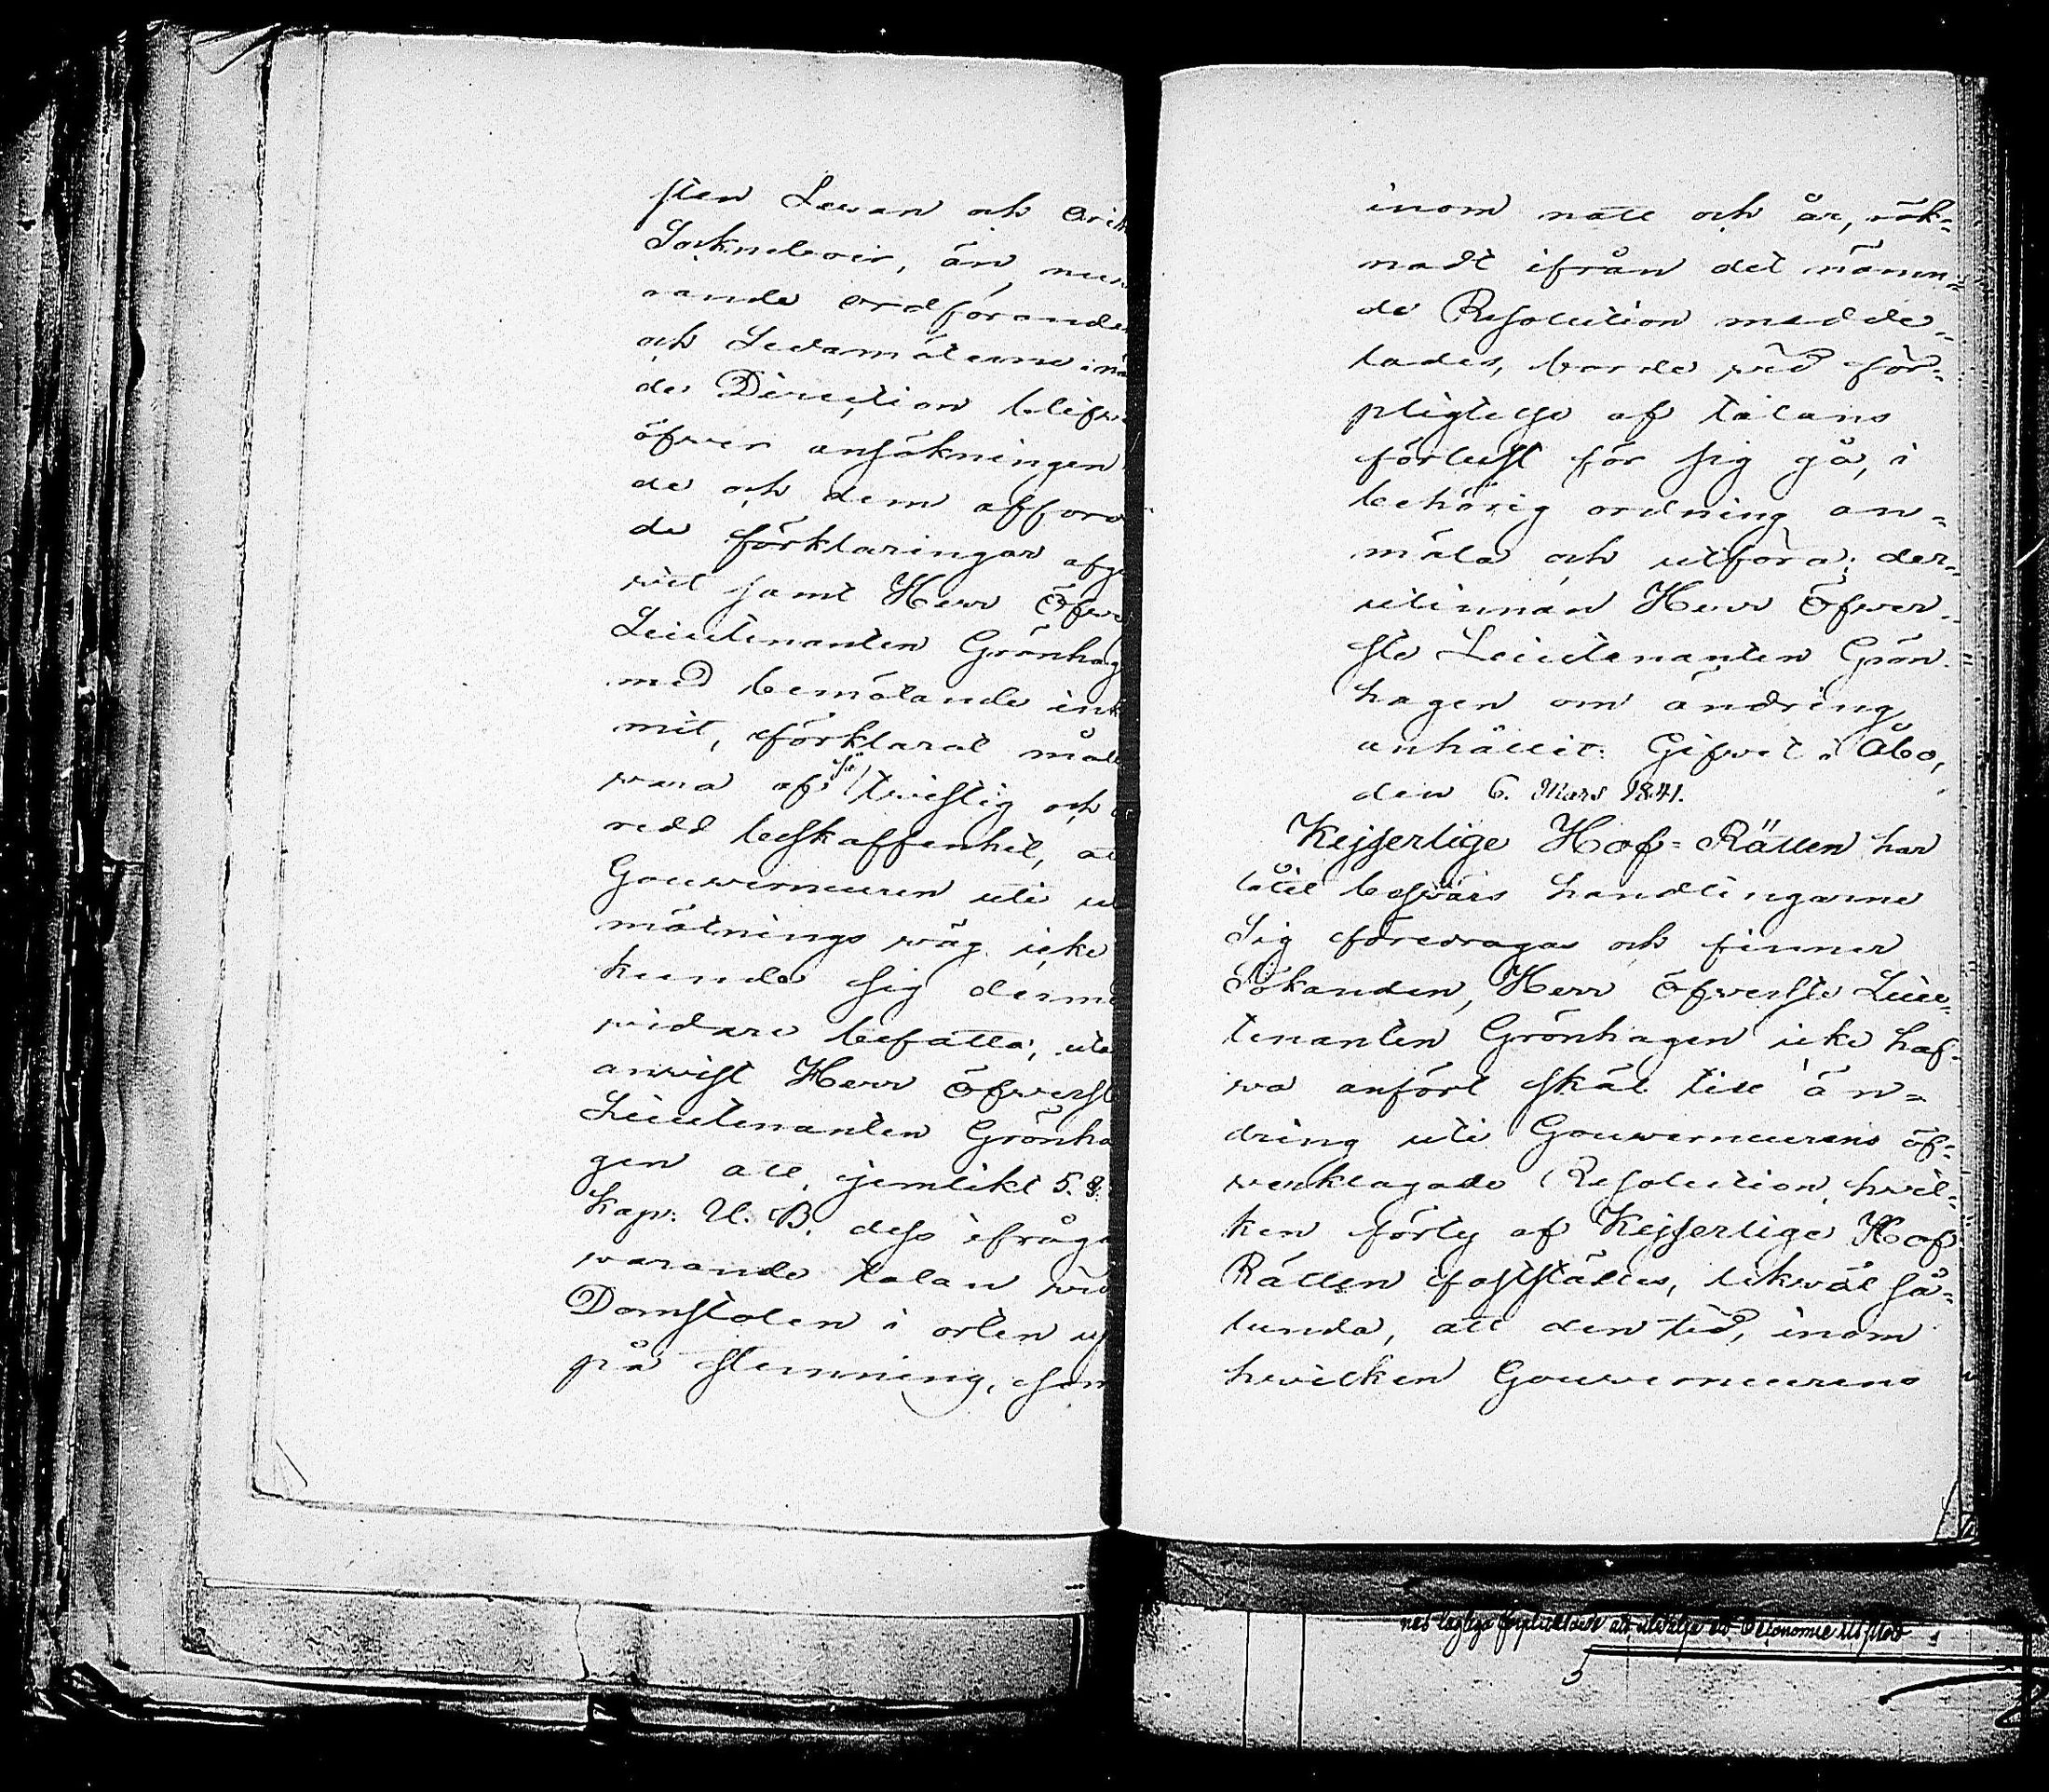 sten Levan och Erik
Sockneboer, än, nuv
arande ordförande
och Ledamöterne i nä
de Direction blifv
öfver ansökningen
de och dem affor
de förklaringar afg
vit samt Herr Öfve
Lieutenanten Grönhag
med bemötande ink
mit, förklarat mål
vara af så tvistig och
redd beskaffenhet, at
Gouverneuren uti ut
mätnings väg icke
kunde sig derm
vidare befatta; uta
anvist Herr Öfverst
Lieutenanten Grönha
gen att, jemlikt 5. §.
Kap: U. B. dess ifråga
varande talan vid
Domstolen i orten up
på stemning, som
inom natt och år, räk-
nadt ifrån det nämn-
de Resolution medde-
lades, borde vid för-
pligtelse af talans
förlust för sig gå, i
behörig ordning an-
mäla och utföra; der-
utinnan Herr Öfver-
ste Lieutenanten Grön-
hagen om ändring
anhållit. Gifvet i Åbo,
den 6. Mars 1841.
Kejserlige Hof-Rätten har
låtit besvärs handlingarne
Sig föredragas och finner
Sökanden, Herr Öfverste Lieu-
tenanten Grönhagen icke haf-
va anfört skäl till än-
dring uti Gouverneurens öf-
verklagade Resolution, hvil-
ken förty af Kejserlige Hof
Rätten fastställes, likväl så-
lunda, att den tid, inom
hvilken Gouverneurens